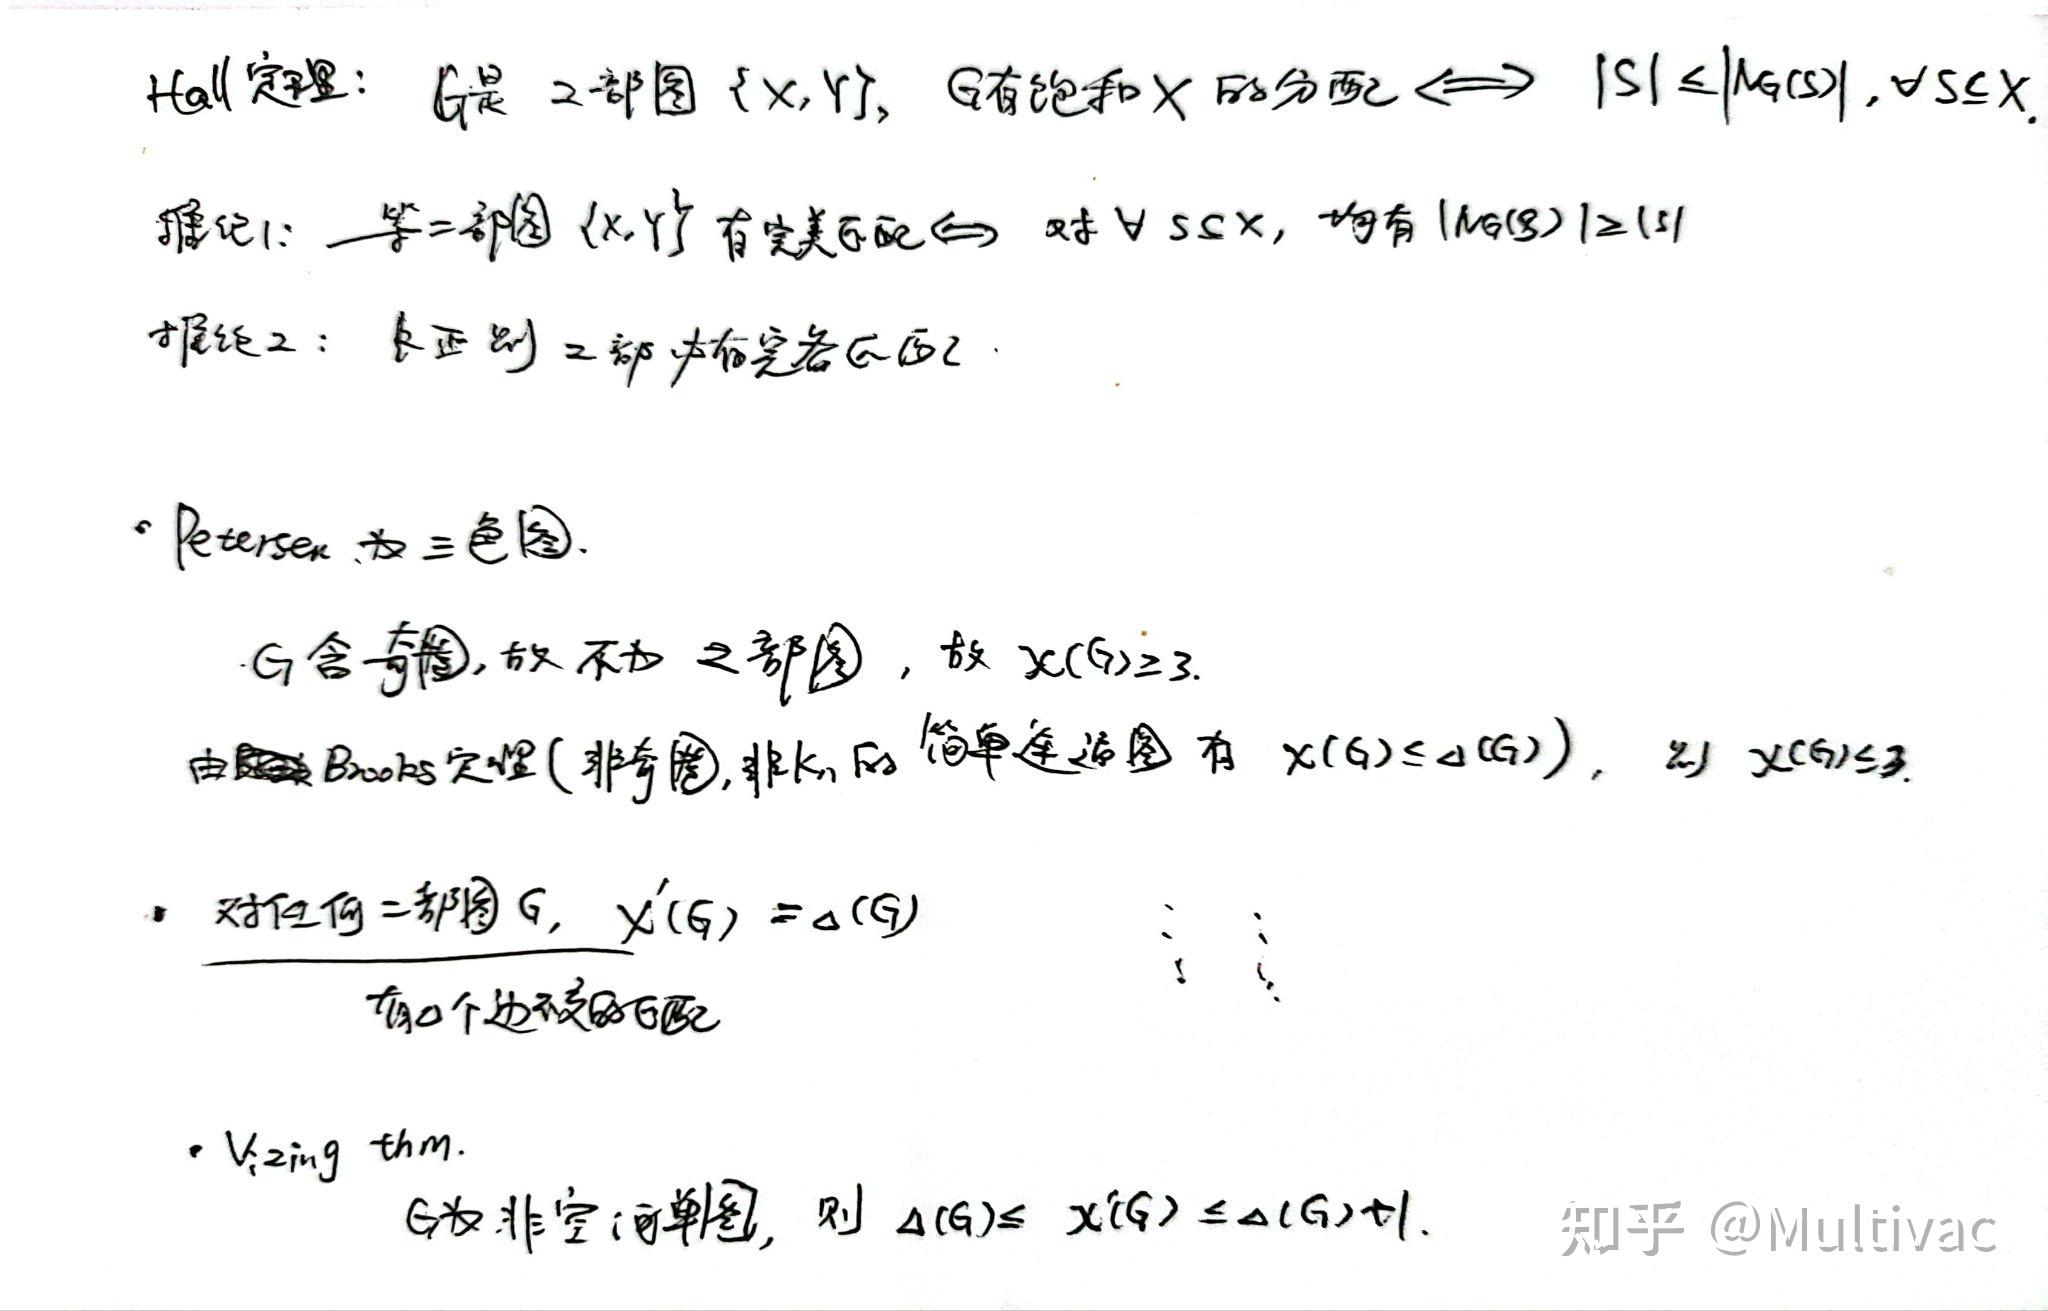 Hall定理: G是二部图{X,Y}, G有饱和X的分配 ⟺ |S|≤|N_G(S)|, ∀S⊆X.
推论1: 一等二部图{X,Y}有完美匹配 ⟺ 对∀S⊆X, 均有|N_G(S)|≥|S|
推论2: k正则二部必有完备匹配.
• Petersen为三色图.
G含奇圈, 故不为二部图, 故χ(G)≥3.
由Brooks定理(非奇圈,非Kn的简单连通图有χ(G)≤Δ(G)), 则χ(G)≤3.
• 对任何二部图G, χ'(G)=Δ(G)
有Δ个边不交的匹配
• Vizing thm.
G为非空简单图, 则Δ(G)≤χ'(G)≤Δ(G)+1.
知乎 @Multivac